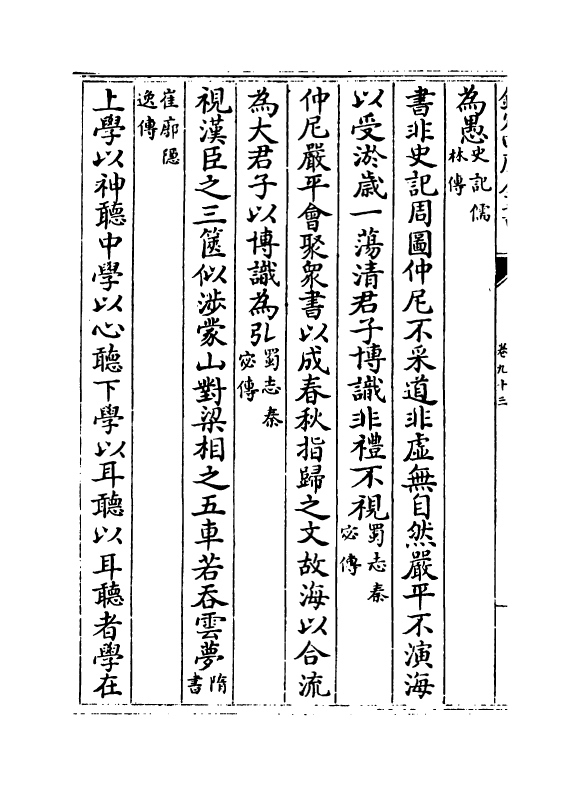 卷九十三
為愚史記儒林傳
書非史記周圖仲尼不采道非虚無自然嚴平不演海
以受淤歲一蕩清君子博識非禮不視蜀志秦宓傳
仲尼嚴平會聚衆書以成春秋指歸之文故海以合流
為大君子以博識為弘蜀志秦宓傳
視漢臣之三篋似涉蒙山對梁相之五車若吞雲夢隋書
崔廓隠逸傳
上學以神聽中學以心聽下學以耳聽以耳聽者學在